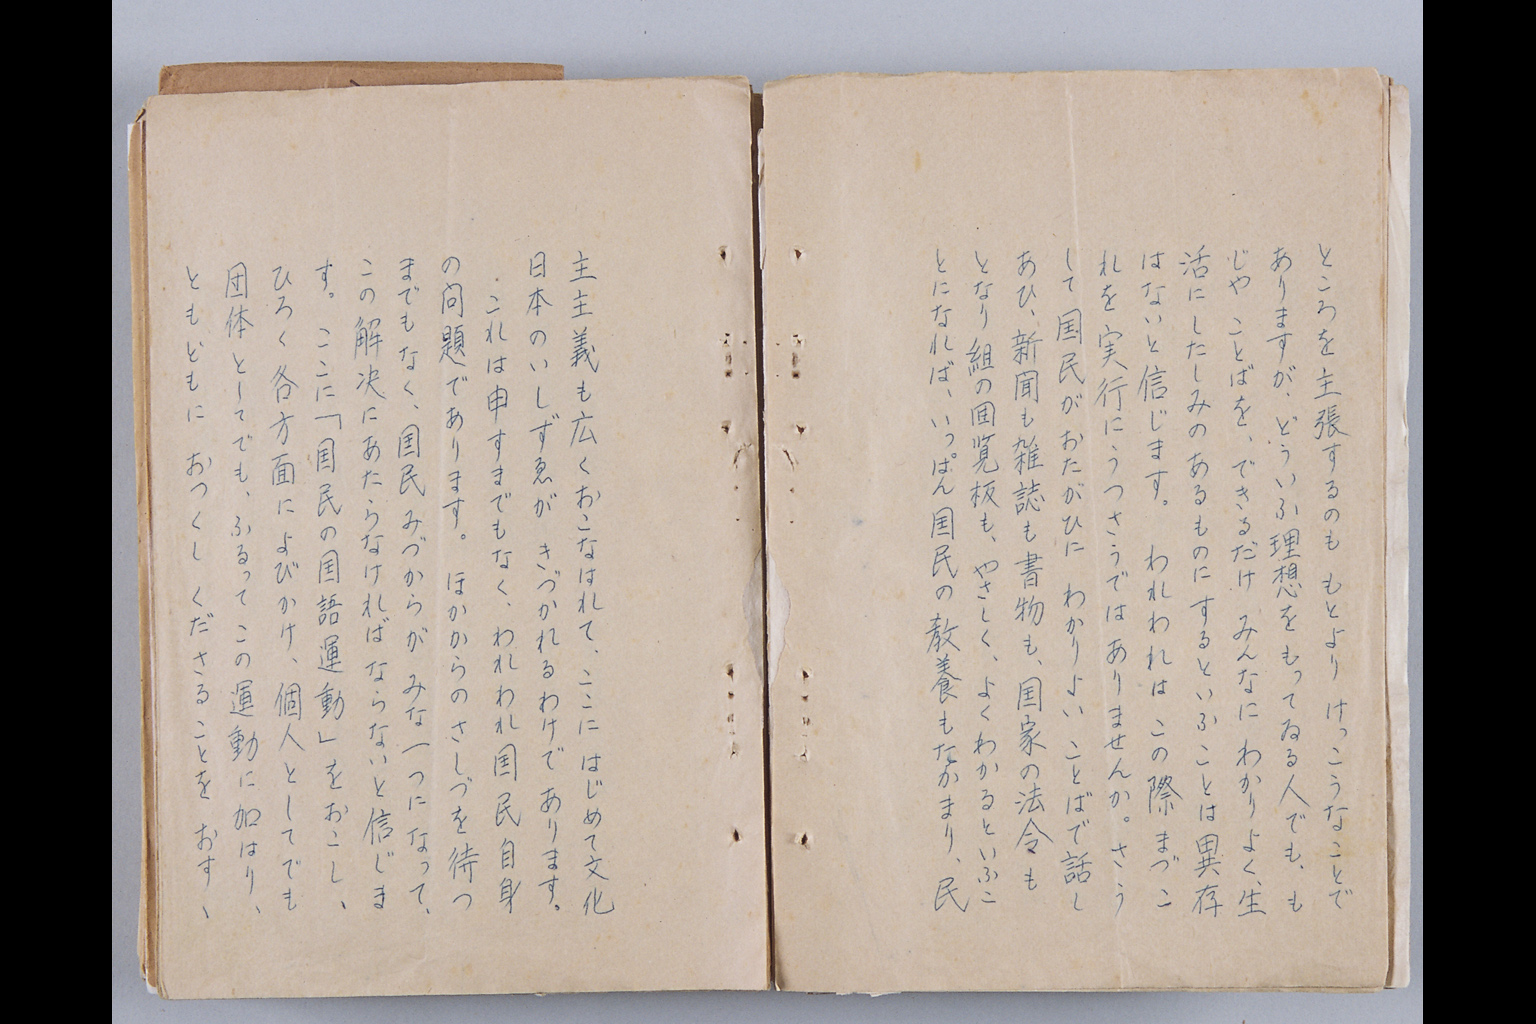 ところを主張するのも もとより けっこうなことで
ありますが、どういふ理想をもってゐる人でも、も
じや ことばを、できるだけ みんなに わかりよく、生
活にしたしみのあるものにするといふことは異存
はないと信じます。 われわれは この際 まづ こ
れを 実行にうつさうではありませんか。さう
して 国民が おたがひに わかりよい ことばで話し
あひ、新聞も雑誌も書物も、国家の法令も
となり組の回覧板も、やさしく、よくわかるといふこ
とになれば、いっぱん国民の 教養もたかまり、民
主主義も広くおこなはれて、ここに はじめて文化
日本のいしずゑが きづかれるわけで あります。
これは申すまでもなく、われわれ国民自身
の問題であります。 ほかからのさしづを待つ
までもなく、国民みづからが みな一つになって、
この解決にあたらなければならないと信じま
す。ここに「国民の国語運動」をおこし、
ひろく各方面によびかけ、個人としてでも
団体としてでも、ふるってこの運動に加はり、
ともどもに おつくし くださることを おすゝ